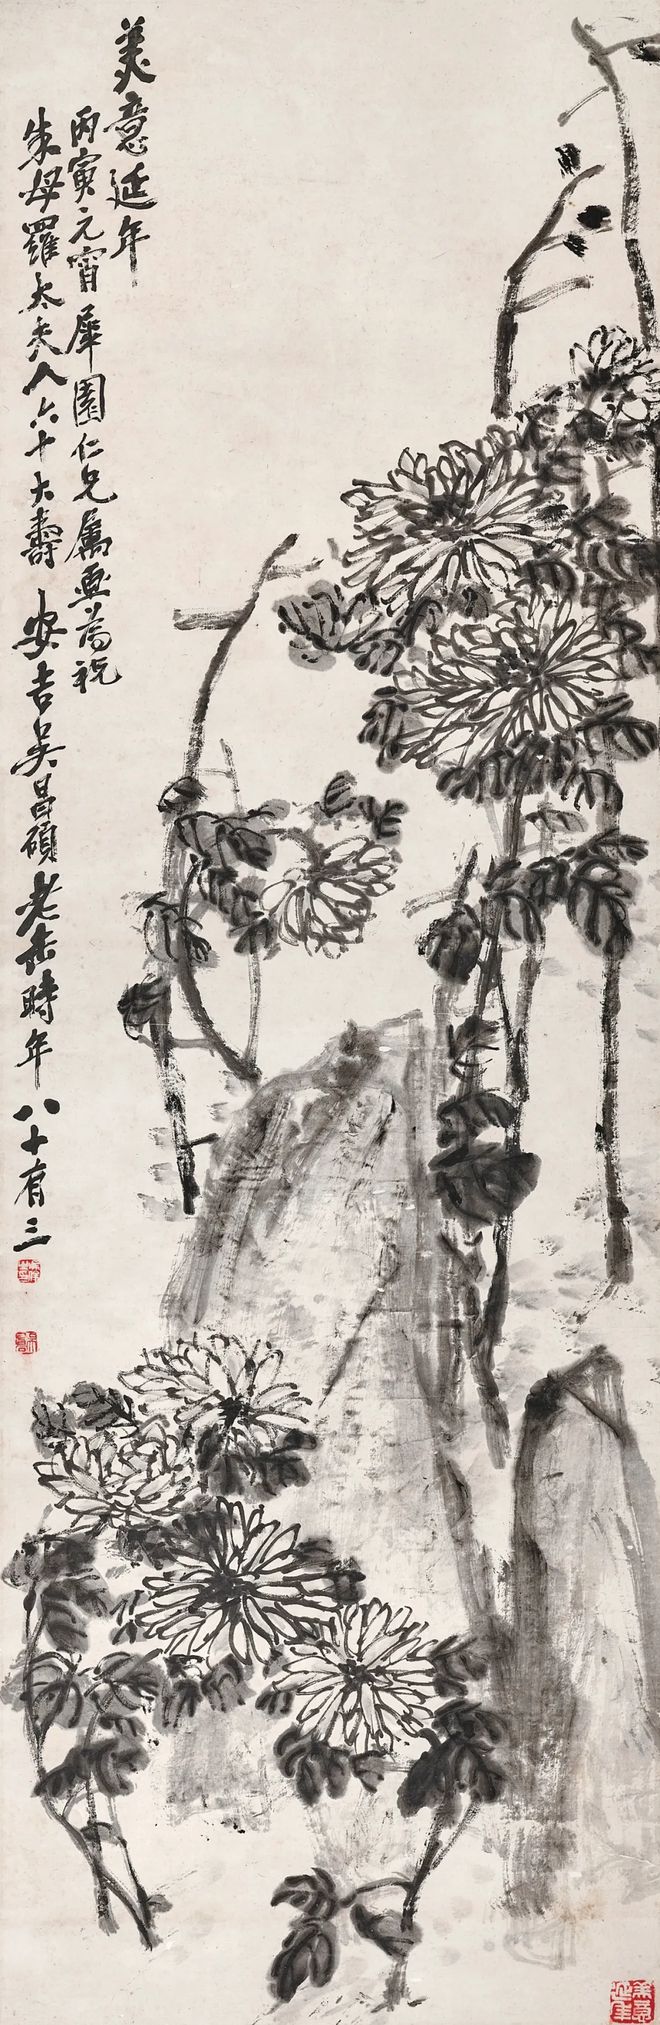 美意延年
丙寅元宵犀園仁兄屬畫為祝
朱母羅太夫人六十大壽 安吉吳昌碩老缶時年八十有三
美意延年